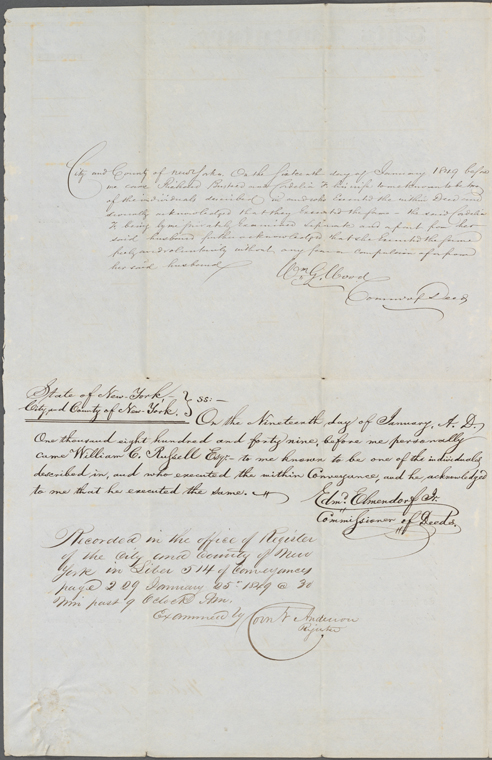 City and County of New York On the day of January 1849 before
me came Richard and his wife to me known to be two
of the individuals described in and who executed the within Deed and
severally acknowledged that they executed the same & the said
being by me privately examined separate and apart from her
said husband further acknowledged that she executed the same
freely and voluntarily without any fear or compulsion of or from
her said husband
Wm G. Wood
Commr of Deeds
State of New-York
City and County of New-York. } ss:—
On the Nineteenth day of January, A. D.
One thousand eight hundred and forty nine, before me personally
came William C. Russell Esqr to me known to be one of the individuals
described in, and who executed the within Conveyance, and he acknowledged
to me that he executed the same.
Edmd. Elmendorf Jr.
Commissioner of Deeds.
Recorded in the office of Register
of the City and County of New
York in Liber 514 of Conveyances
page 239 January 25th 1849 @ 30
Min past 9 Oclock Am.
Examined by Corns V Anderson
Register